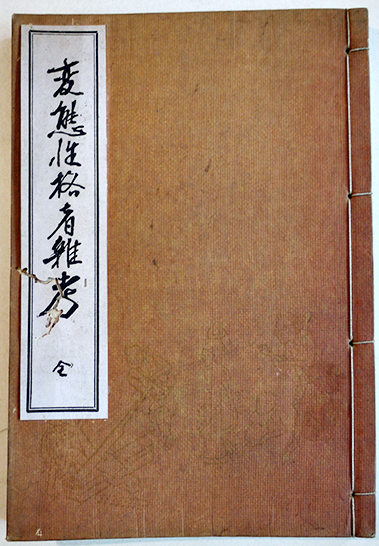 変態性格者雑考
全